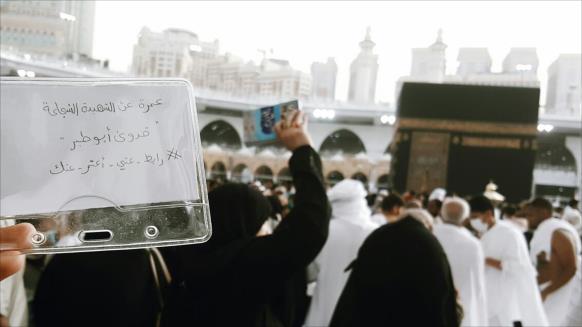 عمرة عن الشهيدة الشجاعة
" فدوى أبوطير "
#رابط_عني_أعتمر_عنك